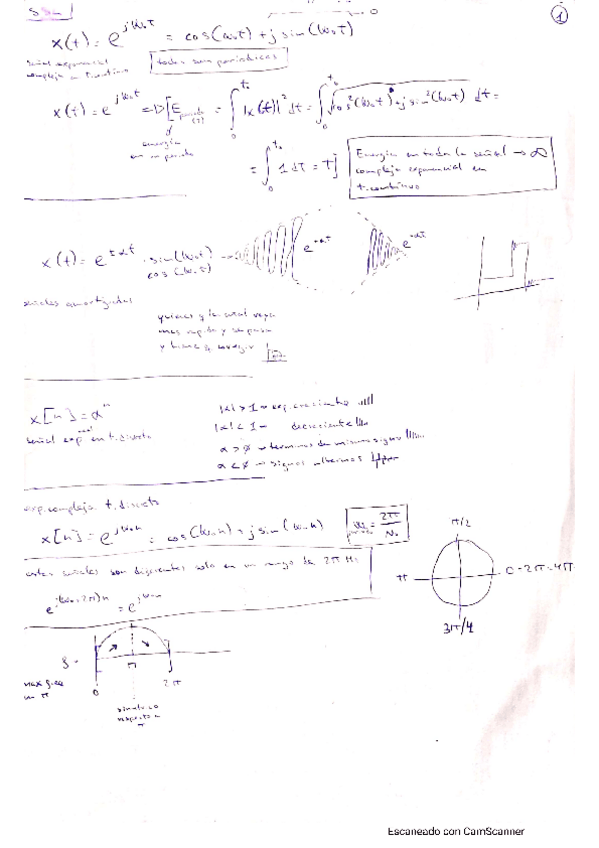 SSLL
①
x(t) = e^{jω₀t} = cos(ω₀t) + j sin(ω₀t)
señal exponencial
compleja en t. continuo
todas son periódicas
x(t) = e^{jω₀t} => [E periodo (T) = ∫₀^{t₀} |x(t)|² dt = ∫₀^{t₀} √cos²(ω₀t) + j sin²(ω₀t) dt =
energía
en un periodo
= ∫₀^{t₀} 1 dt = T]
Energía en toda la señal → ∞
compleja exponencial en
t. continuo
x(t) = e^{±αt} · sin(ω₀t)
cos(ω₀t)
e^{-αt}
e^{-αt}
señales amortiguadas
mas rapido y se pasa
x[n] = αⁿ
señal exp en t. discreto
|α| > 1 → exp. creciente
|α| < 1 - decreciente
α > 0 → terminos de mismo signo
α < 0 → signos alternos
exp. compleja t. discreto
x[n] = e^{jω₀n} = cos(ω₀n) + j sin(ω₀n)
ω₀ = 2π/N₀
estas señales son diferentes solo en un rango de 2π Hz
e^{j(ω₀+2π)n} = e^{jω₀n}
π/2
π
0 - 2π - 4π
3π/4
max frec
en π
0
π
2π
simetrico
respecto a
π
Escaneado con CamScanner